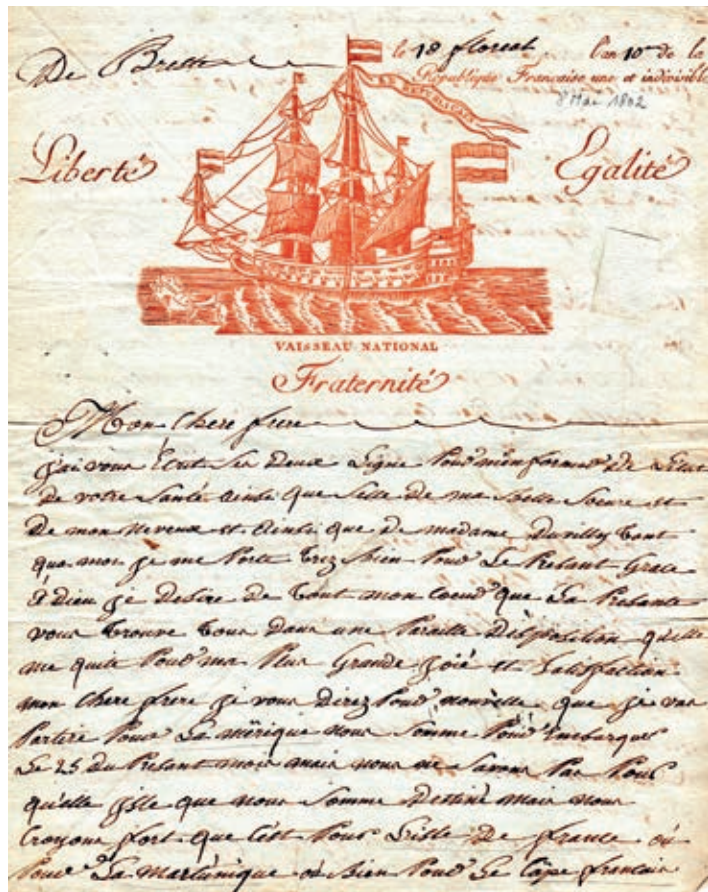 De Brest le 18 floreal l'an 10me de la
République Française une et indivisible
8 Mai 1802
LA RÉPUBLICAINE
Liberté Egalité
VAISSEAU NATIONAL
Fraternité
Mon Chere frere
j'ai vous Ecrit Ses Deux Ligne Pour m'informer De L'Etat
De votre Santé Ainsi que Selle De ma Belle Soeure et
De mon Neveux et Ainsi que De madame Duvilly tant
qua moi je me Porte trez Bien Pour Le Presant Grace
à Dieu je Desire De tout mon Coeur que La Presante
vous trouve tous Dans une Pareille Disposition qu'elle
me quite Pour ma Plus Grande joié et Satisfaction
mon Chere frere je vous Direz Pour nouvelle que je vas
Partire Pour La mérique nous Somme Pour Embarquer
Le 25 du Presant mois mais nous ne Savons Pas Pour
qu'elle jsle que nous Somme Destiné mais nous
Croyons fort que C'est Pour L'isle De france où
Pour La Martinique où Bien Pour Le Cape francais